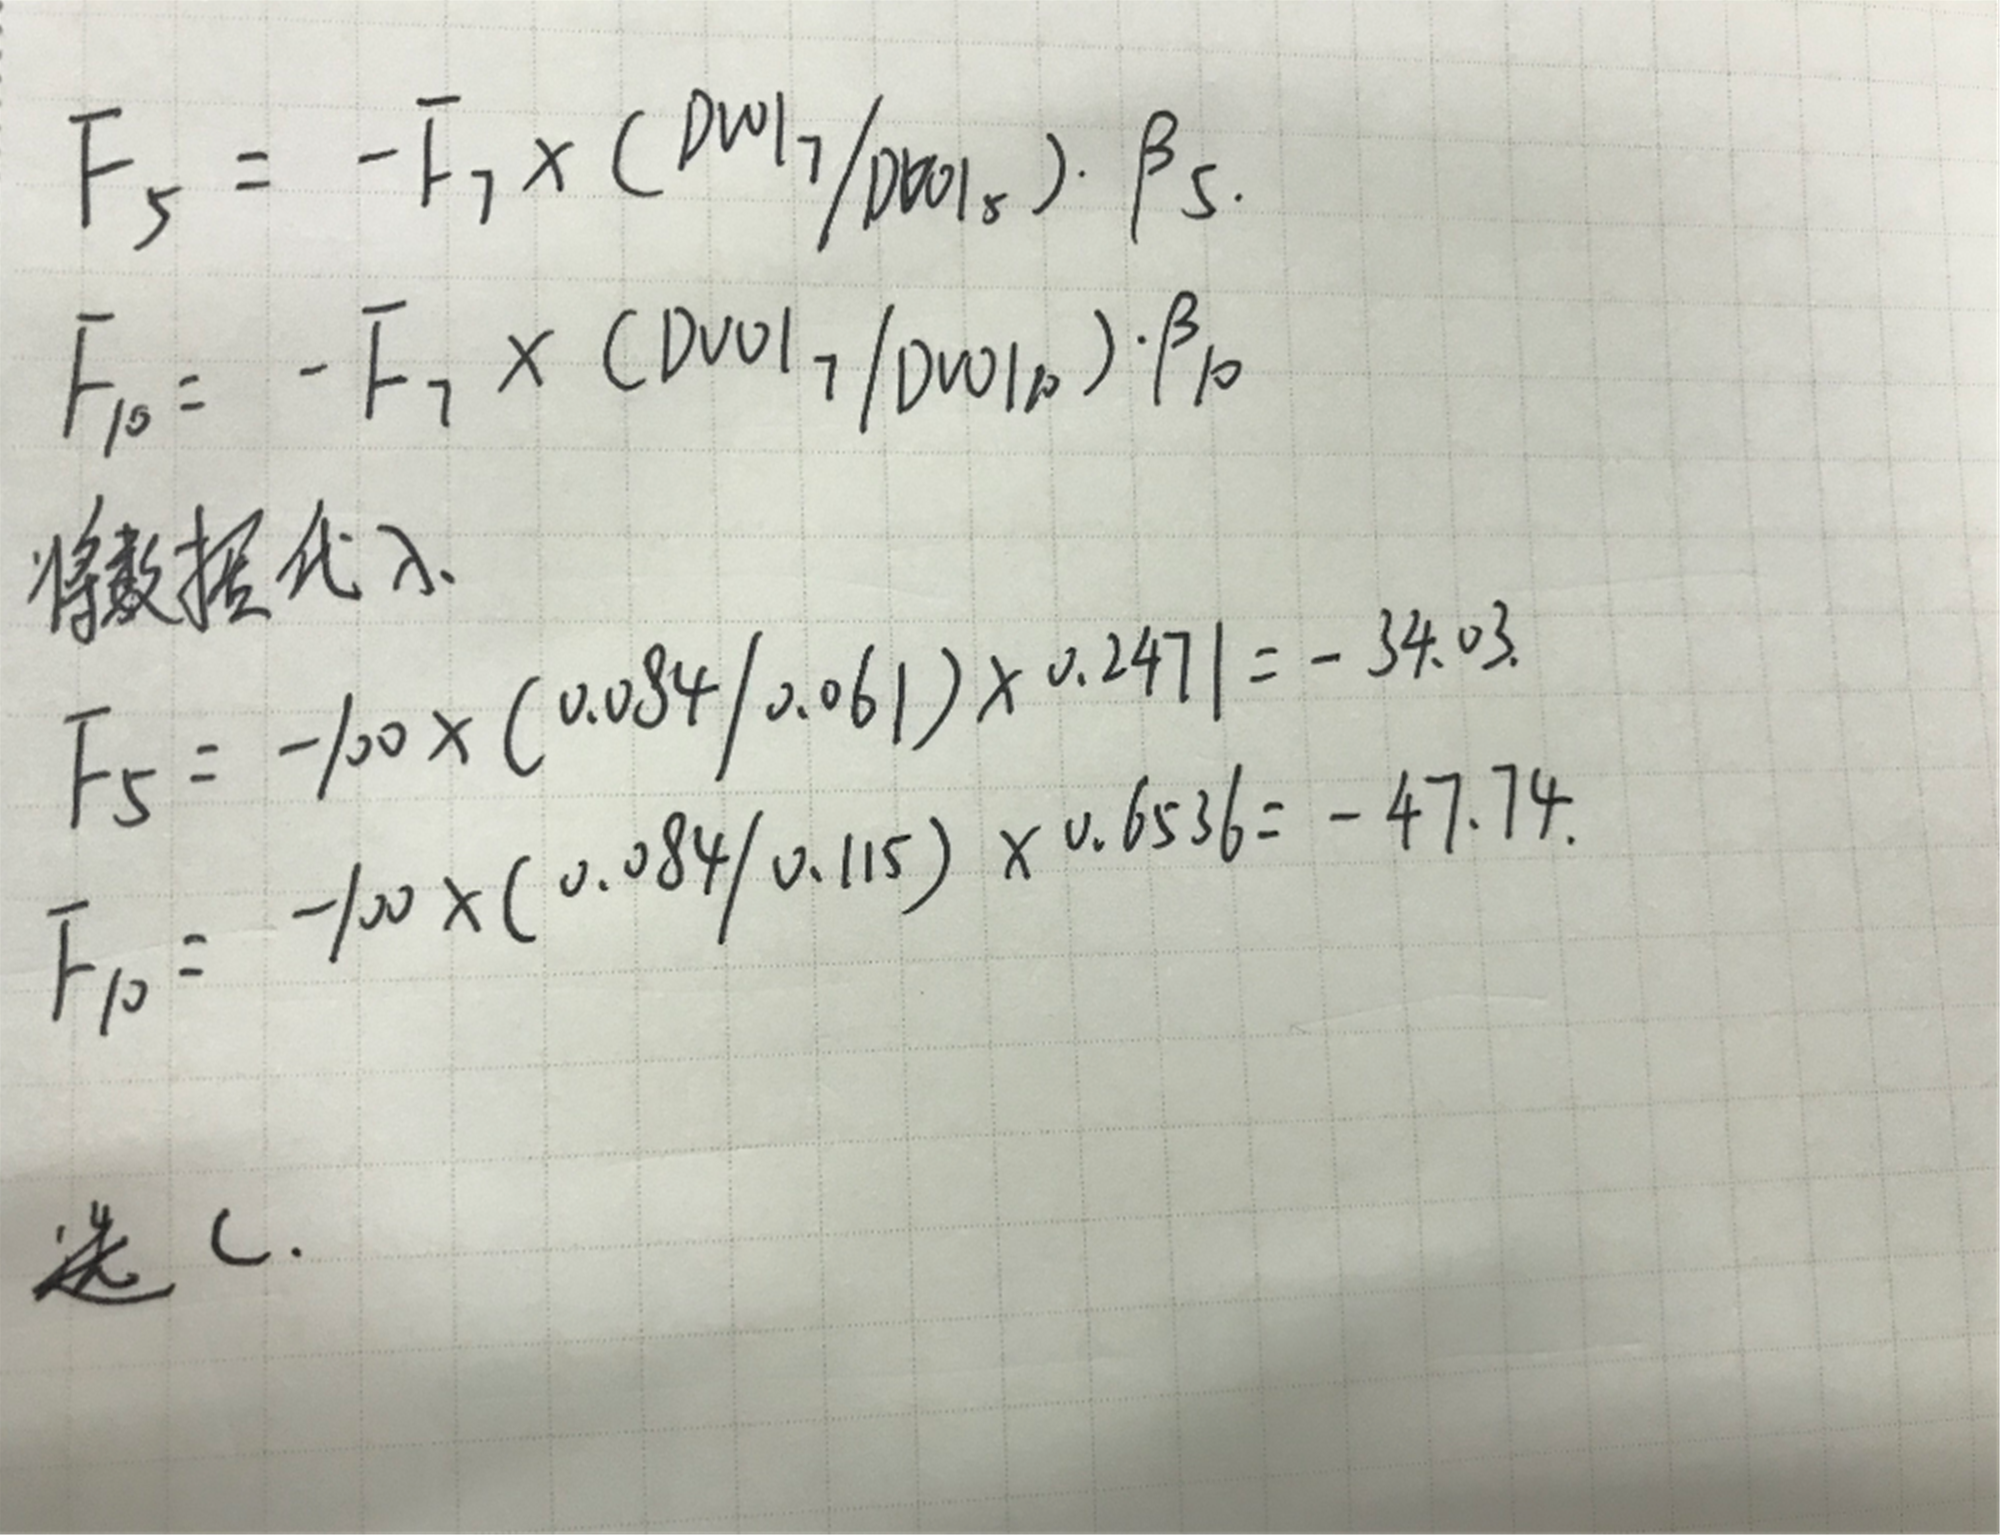 F₅ = -F₇ × (DV01₇/DV01₅)·β₅.
F₁₀ = -F₇ × (DV01₇/DV01₁₀)·β₁₀
将数据代入.
F₅ = -100 × (0.084/0.061) × 0.2471 = -34.03.
F₁₀ = -100 × (0.084/0.115) × 0.6536 = -47.74.
选 C.